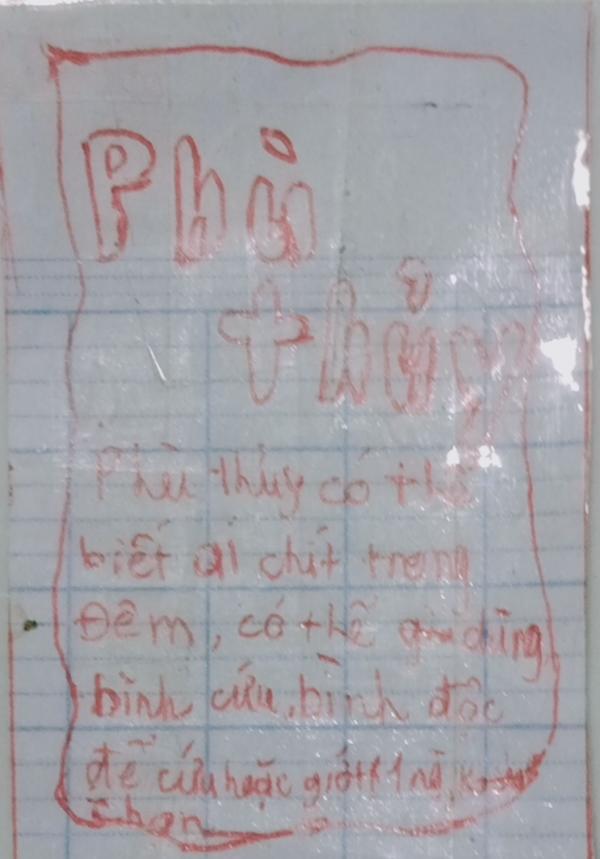 Phù
thủy
Phù thủy có thể
biết ai chít trong
Đêm, có thể dùng
bình cứu, bình độc
để cứu hoặc giớt 1